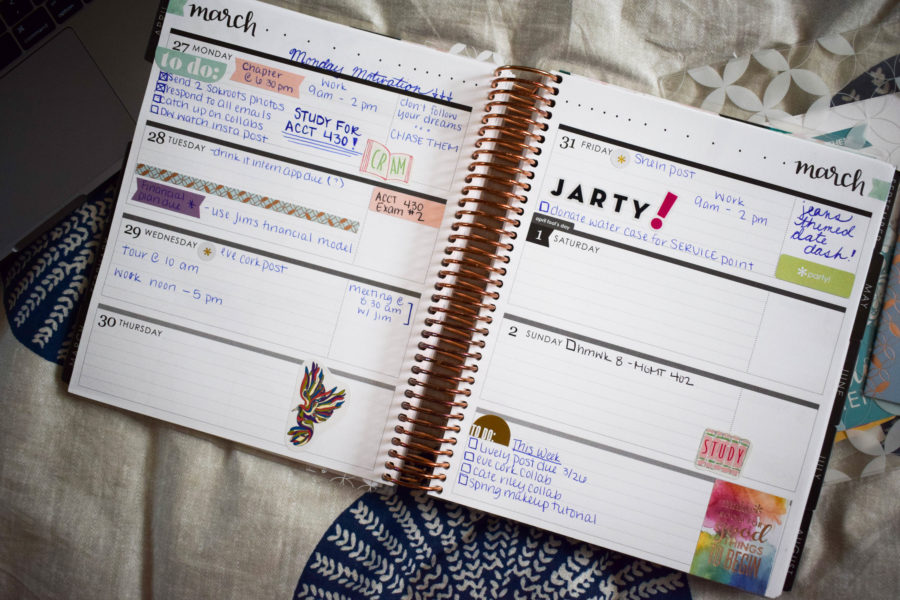 APRIL
march
27 MONDAY
Monday Motivation
to do:
Send 2 Sakroots photos
respond to all emails
Catch up on collabs
DW watch insta post
Chapter
@ 6:30 pm
Work
9am - 2 pm
STUDY FOR
ACCT 430!
don't follow
your dreams
...
CHASE THEM
CRAM
28 TUESDAY
-drink it intern app due (?)
Financial
plan due *
- use Jim's financial model
ACCT 430
Exam #2
29 WEDNESDAY
eve cork post
Tour @ 10 am
work noon - 5 pm
meeting @
8:30 am
w/ Jim
30 THURSDAY
march
31 FRIDAY
Shein post
JARTY!
Work
9am - 2 pm
donate water case for SERVICE point
jeans
themed
date
dash!
party!
april fool's day
1 SATURDAY
2 SUNDAY
hmwk 8 - MGMT 402
STUDY
TO DO:
This Week
Lively post due 3/26
eve cork collab
cate riley collab
spring makeup tutorial
THINGS
TO BEGIN
MAY
JUNE
JULY
AUGUST